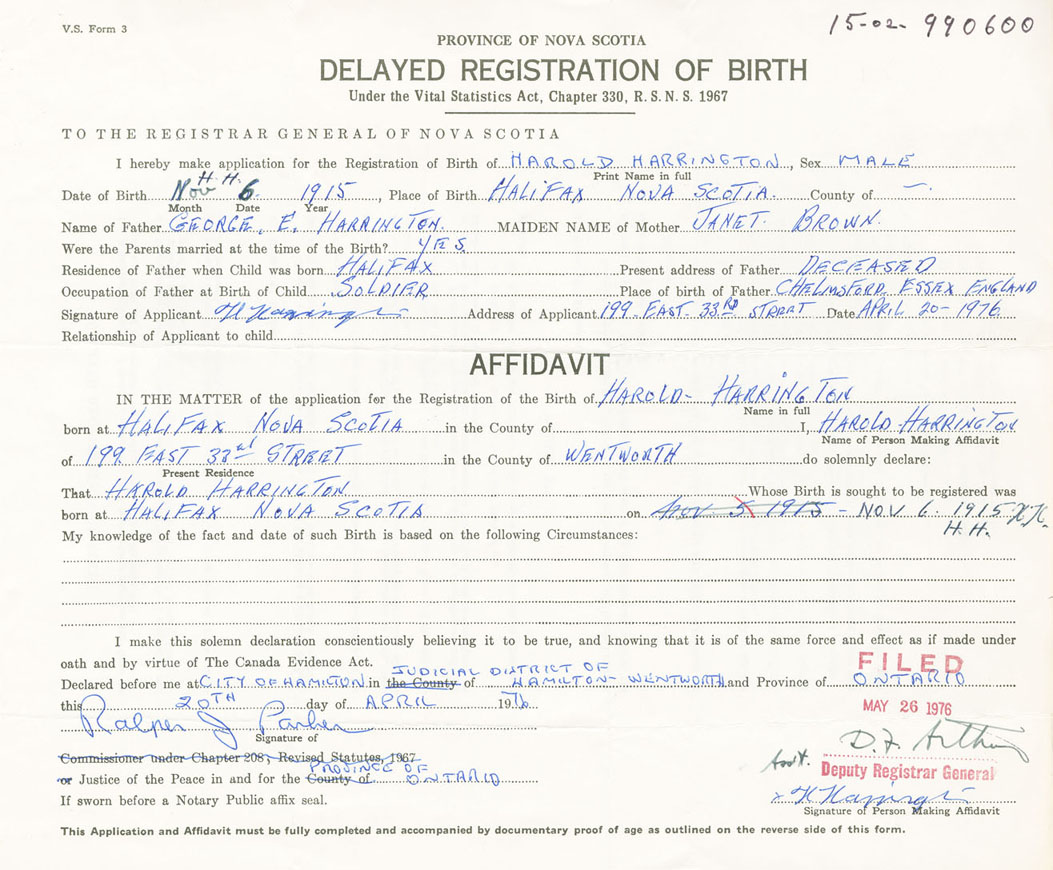 V.S. Form 3
15-02- 990600
PROVINCE OF NOVA SCOTIA
DELAYED REGISTRATION OF BIRTH
Under the Vital Statistics Act, Chapter 330, R. S. N. S. 1967
TO THE REGISTRAR GENERAL OF NOVA SCOTIA
I hereby make application for the Registration of Birth of HAROLD HARRINGTON, Sex MALE
Print Name in full
H. H.
Date of Birth Nov 6. 1915, Place of Birth HALIFAX NOVA SCOTIA. County of —.
Month Date Year
Name of Father GEORGE. E. HARRINGTON. MAIDEN NAME of Mother JANET. BROWN.
Were the Parents married at the time of the Birth? YES
Residence of Father when Child was born HALIFAX Present address of Father DECEASED
Occupation of Father at Birth of Child SOLDIER Place of birth of Father CHELMSFORD ESSEX ENGLAND
Signature of Applicant H Harrington Address of Applicant 199. EAST. 33RD STREET Date APRIL 20- 1976
Relationship of Applicant to child
AFFIDAVIT
IN THE MATTER of the application for the Registration of the Birth of HAROLD- HARRINGTON
Name in full
born at HALIFAX NOVA SCOTIA in the County of I, HAROLD HARRINGTON
Name of Person Making Affidavit
of 199. EAST 33rd STREET in the County of WENTWORTH do solemnly declare:
Present Residence
That HAROLD HARRINGTON Whose Birth is sought to be registered was
born at HALIFAX NOVA SCOTIA on Nov 5 1915 - NOV 6. 1915 H.H.
H. H.
My knowledge of the fact and date of such Birth is based on the following Circumstances:
I make this solemn declaration conscientiously believing it to be true, and knowing that it is of the same force and effect as if made under
oath and by virtue of The Canada Evidence Act.
FILED
JUDICIAL DISTRICT OF
Declared before me at CITY OF HAMILTON in the County of HAMILTON-WENTWORTH and Province of ONTARIO
this 20TH day of APRIL 1976
MAY 26 1976
Signature of
D. F. Arthur
Commissioner under Chapter 208, Revised Statutes, 1967
Deputy Registrar General
PROVINCE OF
or Justice of the Peace in and for the County of ONTARIO
x H Harrington
If sworn before a Notary Public affix seal.
Signature of Person Making Affidavit
This Application and Affidavit must be fully completed and accompanied by documentary proof of age as outlined on the reverse side of this form.